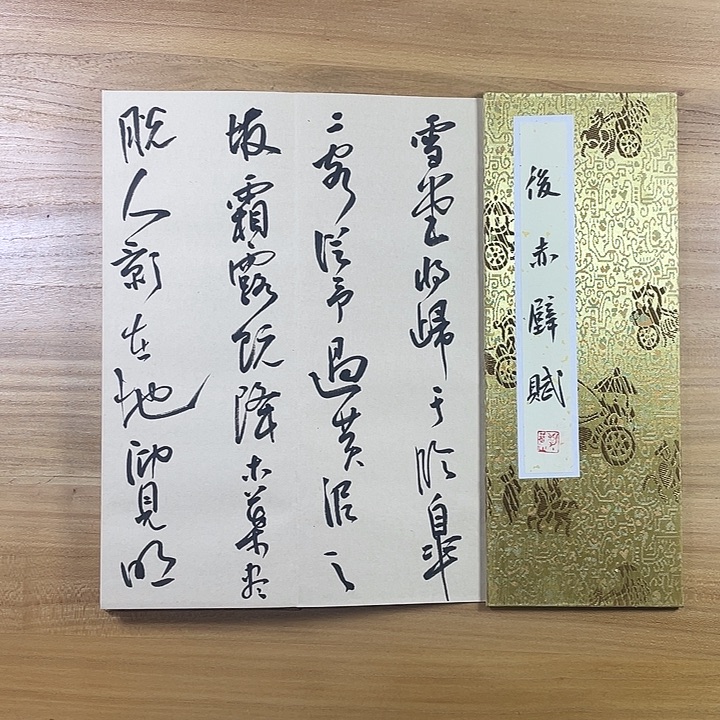 後赤壁賦
雪堂将歸于臨皐
二客從予過黄泥之
坂霜露既降木葉盡
脱人影在地仰見明